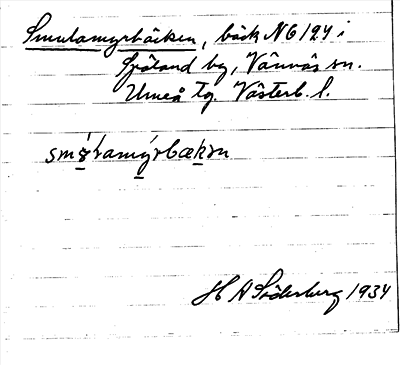 Smulamyrbäcken, bäck N6 124 i
Spöland by, Vännäs sn.
Umeå tg. Västerb. l.
H A Söderberg 1934